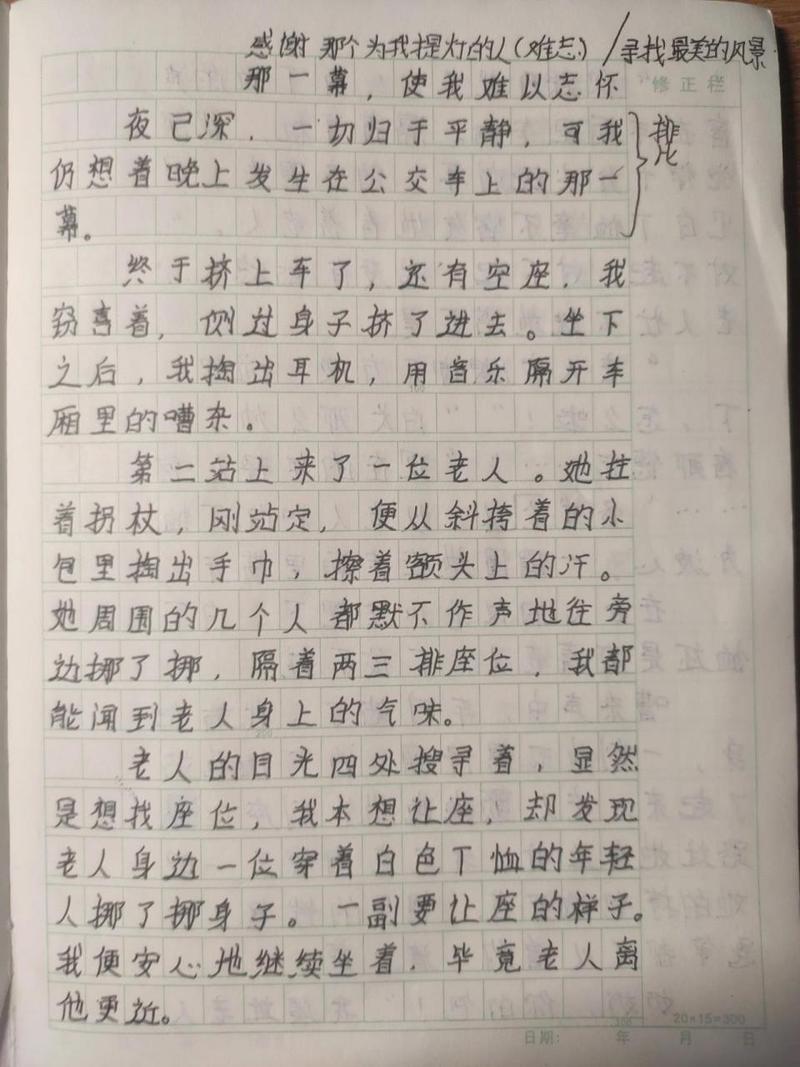 感谢那个为我提灯的人(难忘)/寻找最美的风景
那一幕，使我难以忘怀
修正栏
夜已深，一切归于平静，可我
排比
仍想着晚上发生在公交车上的那一
幕。
终于挤上车了，还有空座，我
窃喜着，侧过身子挤了进去。坐下
之后，我掏出耳机，用音乐隔开车
厢里的嘈杂。
第二站上来了一位老人。她拄
着拐杖，刚站定，便从斜挎着的小
包里掏出手巾，擦着额头上的汗。
她周围的几个人都默不作声地往旁
边挪了挪，隔着两三排座位，我都
能闻到老人身上的气味。
老人的目光四处搜寻着，显然
是想找座位，我本想让座，却发现
老人身边一位穿着白色T恤的年轻
人挪了挪身子。一副要让座的样子。
我便安心地继续坐着，毕竟老人离
他更近。
20×15=300
日期： 年 月 日